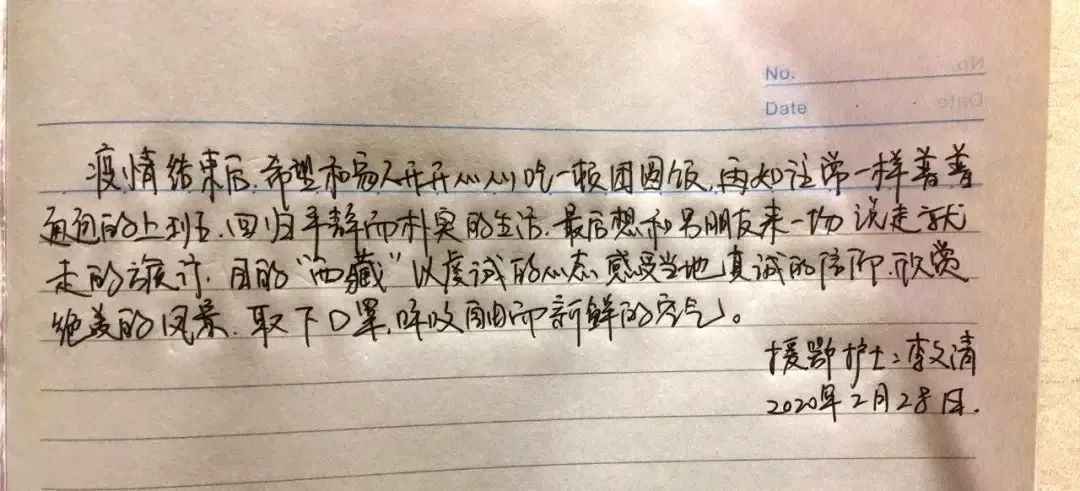 No.
Date
疫情结束后,希望和家人开开心心吃一顿团圆饭,再如往常一样普普
通通的上班,回归平静而朴实的生活.最后想和男朋友来一场说走就
走的旅行.目的"西藏"以虔诚的心态感受当地真诚的信仰.欣赏
绝美的风景.取下口罩,呼吸自由而新鲜的空气。
援鄂护士:李文清
2020年2月28日.